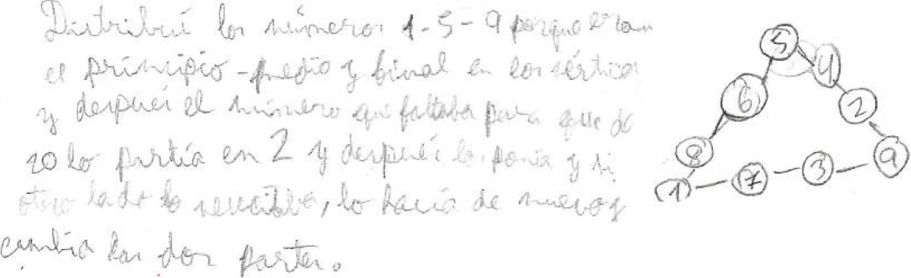 Distribuí los números 1-5-9 porque eran
el principio-medio y final en los vértices
y después el número que faltaba para que de
20 lo partía en 2 y después lo ponía y si
otro lado lo necesitaba, lo hacía de nuevo y
cambia las dos partes.
5
4
6
2
8
9
1
7
3